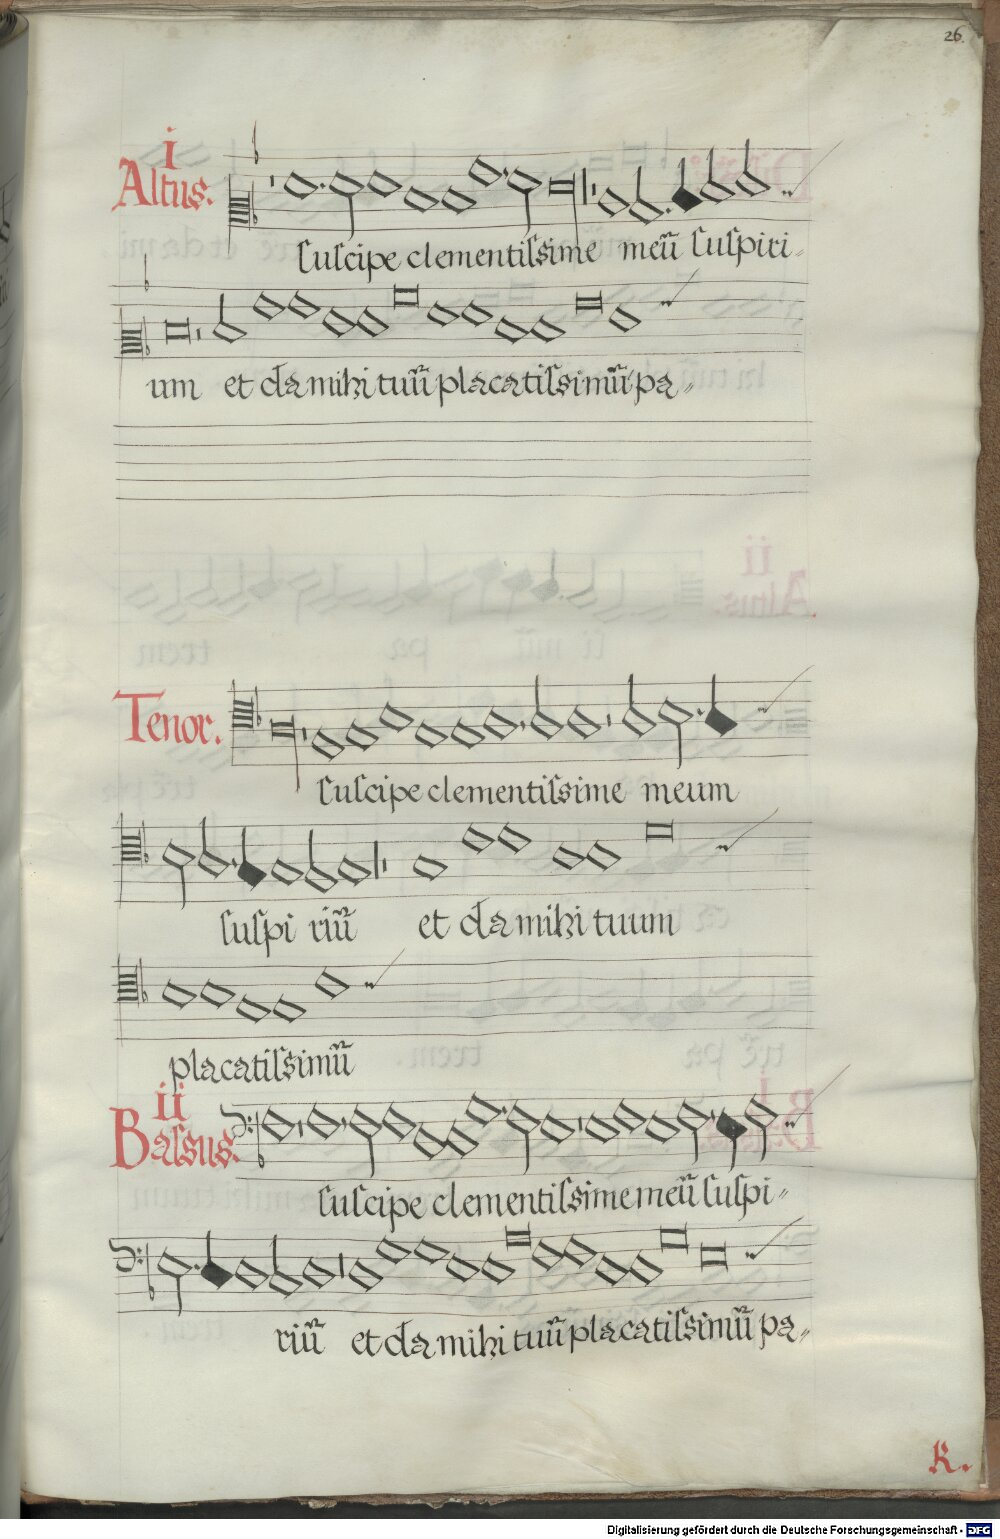 26.
i
Altus.
Suscipe clementissime meũ suspiri-
um et da mihi tuũ placatissimũ pa-
Tenor.
Suscipe clementissime meum
suspi riũ et da mihi tuum
placatissimũ
ii
Bassus.
Suscipe clementissime meũ suspi-
riũ et da mihi tuũ placatissimũ pa-
K.
Digitalisierung gefördert durch die Deutsche Forschungsgemeinschaft - DFG